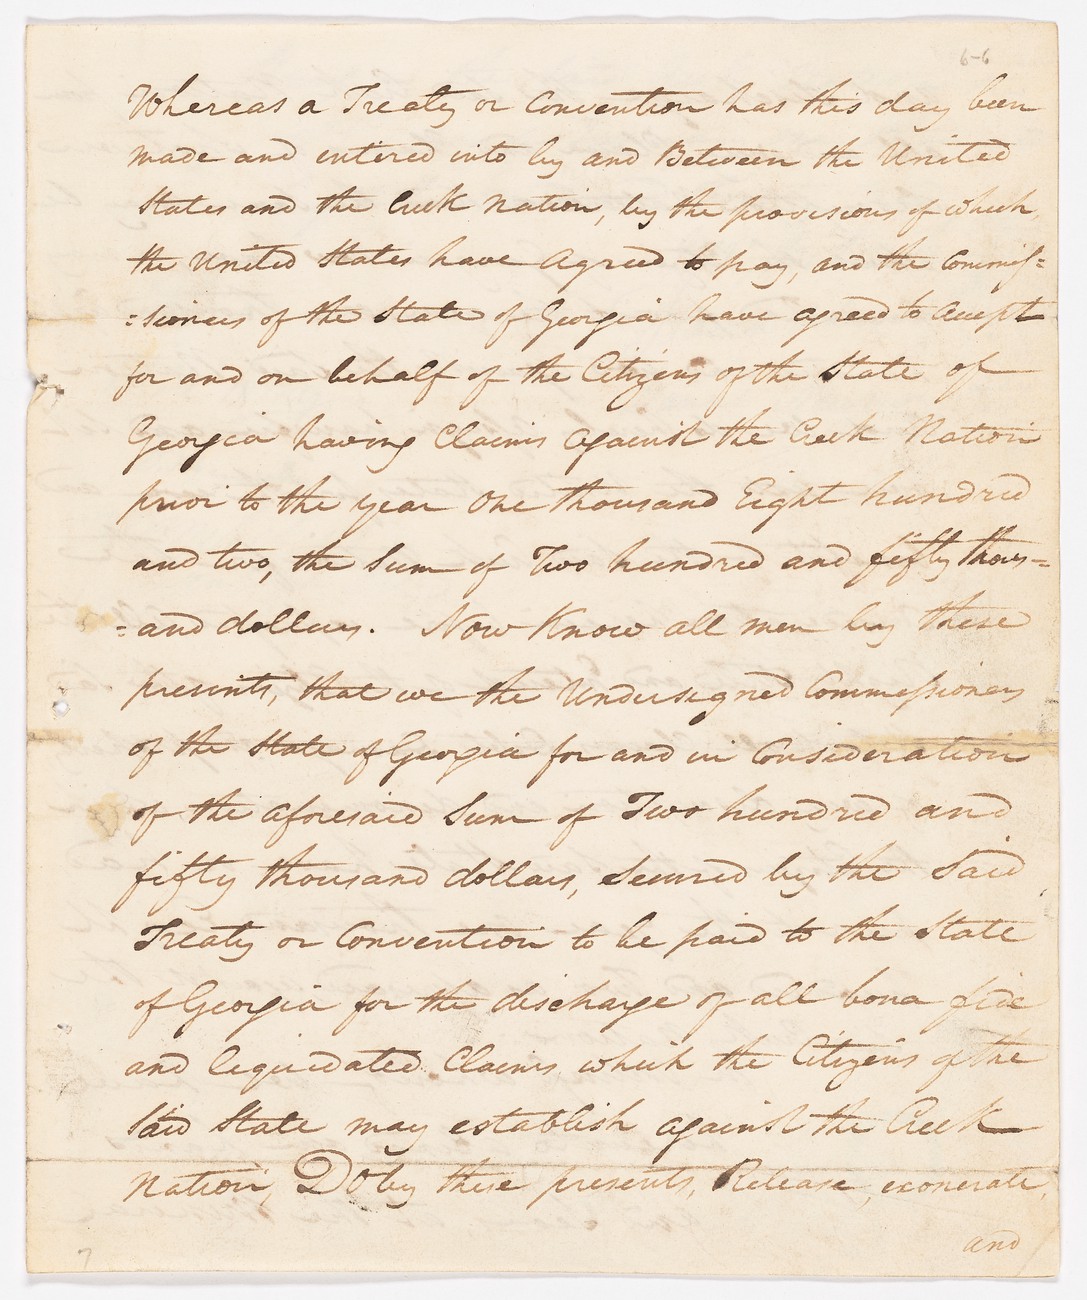 6-6
Whereas a Treaty or Convention has this day been
made and entered into by and Between the United
States and the Creek Nation, by the provisions of which,
the United States have agreed to pay, and the Commis=
=sioners of the State of Georgia have agreed to accept
for and on behalf of the Citizens of the State of
Georgia having Claims against the Creek Nation
prior to the year One thousand Eight hundred
and two, the Sum of Two hundred and fifty thous=
=and dollars. Now Know all men by these
presents, that we the Undersigned Commissioners
of the State of Georgia for and in Consideration
of the aforesaid Sum of Two hundred and
fifty thousand dollars, Secured by the Said
Treaty or Convention to be paid to the State
of Georgia for the discharge of all bona fide
and liquidated Claims which the Citizens of the
Said State may establish against the Creek
Nation, Do by these presents, Release, exonerate,
and
7